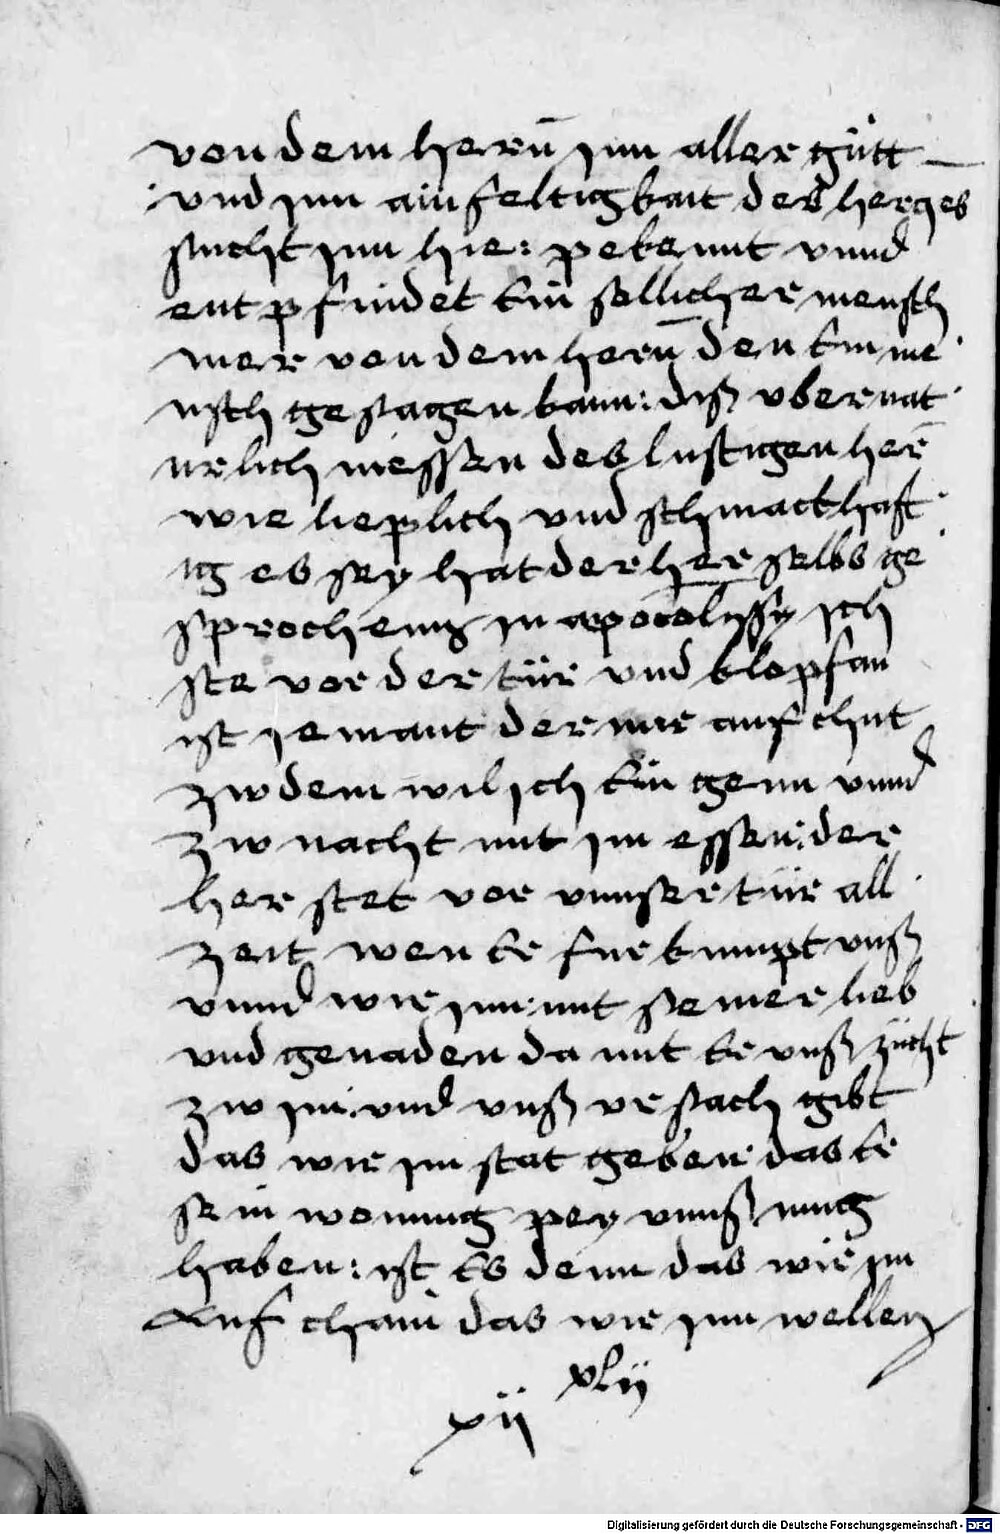 von dem herrn̄ jnn aller gütt —
vnd jnn ainfeltigkait des herczes
suecht jnn hie: pekennt vnnd
entpfindet Ein sellicher mensch
mer von dem hern̄ den Ein me
nsch gesagen kann: diß vbernat
urlich niessen des lustigen hern̄
wie lieplich vnd schmackhaft
ig es sey hat der her selbs ge
sprochenn in apocolissy ich
ste vor der tür vnd klopf an
ist jemant der mir auf thut
zw dem wil jch Ein genn vnnd
zw nacht mit jm essen: der
her stet vor vnnser tür all
zeit wen Er fürkumpt vnß
vnnd wir jnn: mit seiner lieb
vnd genaden da mit Er vnß zücht
zw jm: vnd vnß vrsach gibt
das wir jm stat geben das Er
sein wonung pey vnnß mug
haben: ist Es denn das wir jm
Auf thain das wir jnn wellen
xlij
xij
Digitalisierung gefördert durch die Deutsche Forschungsgemeinschaft - DFG